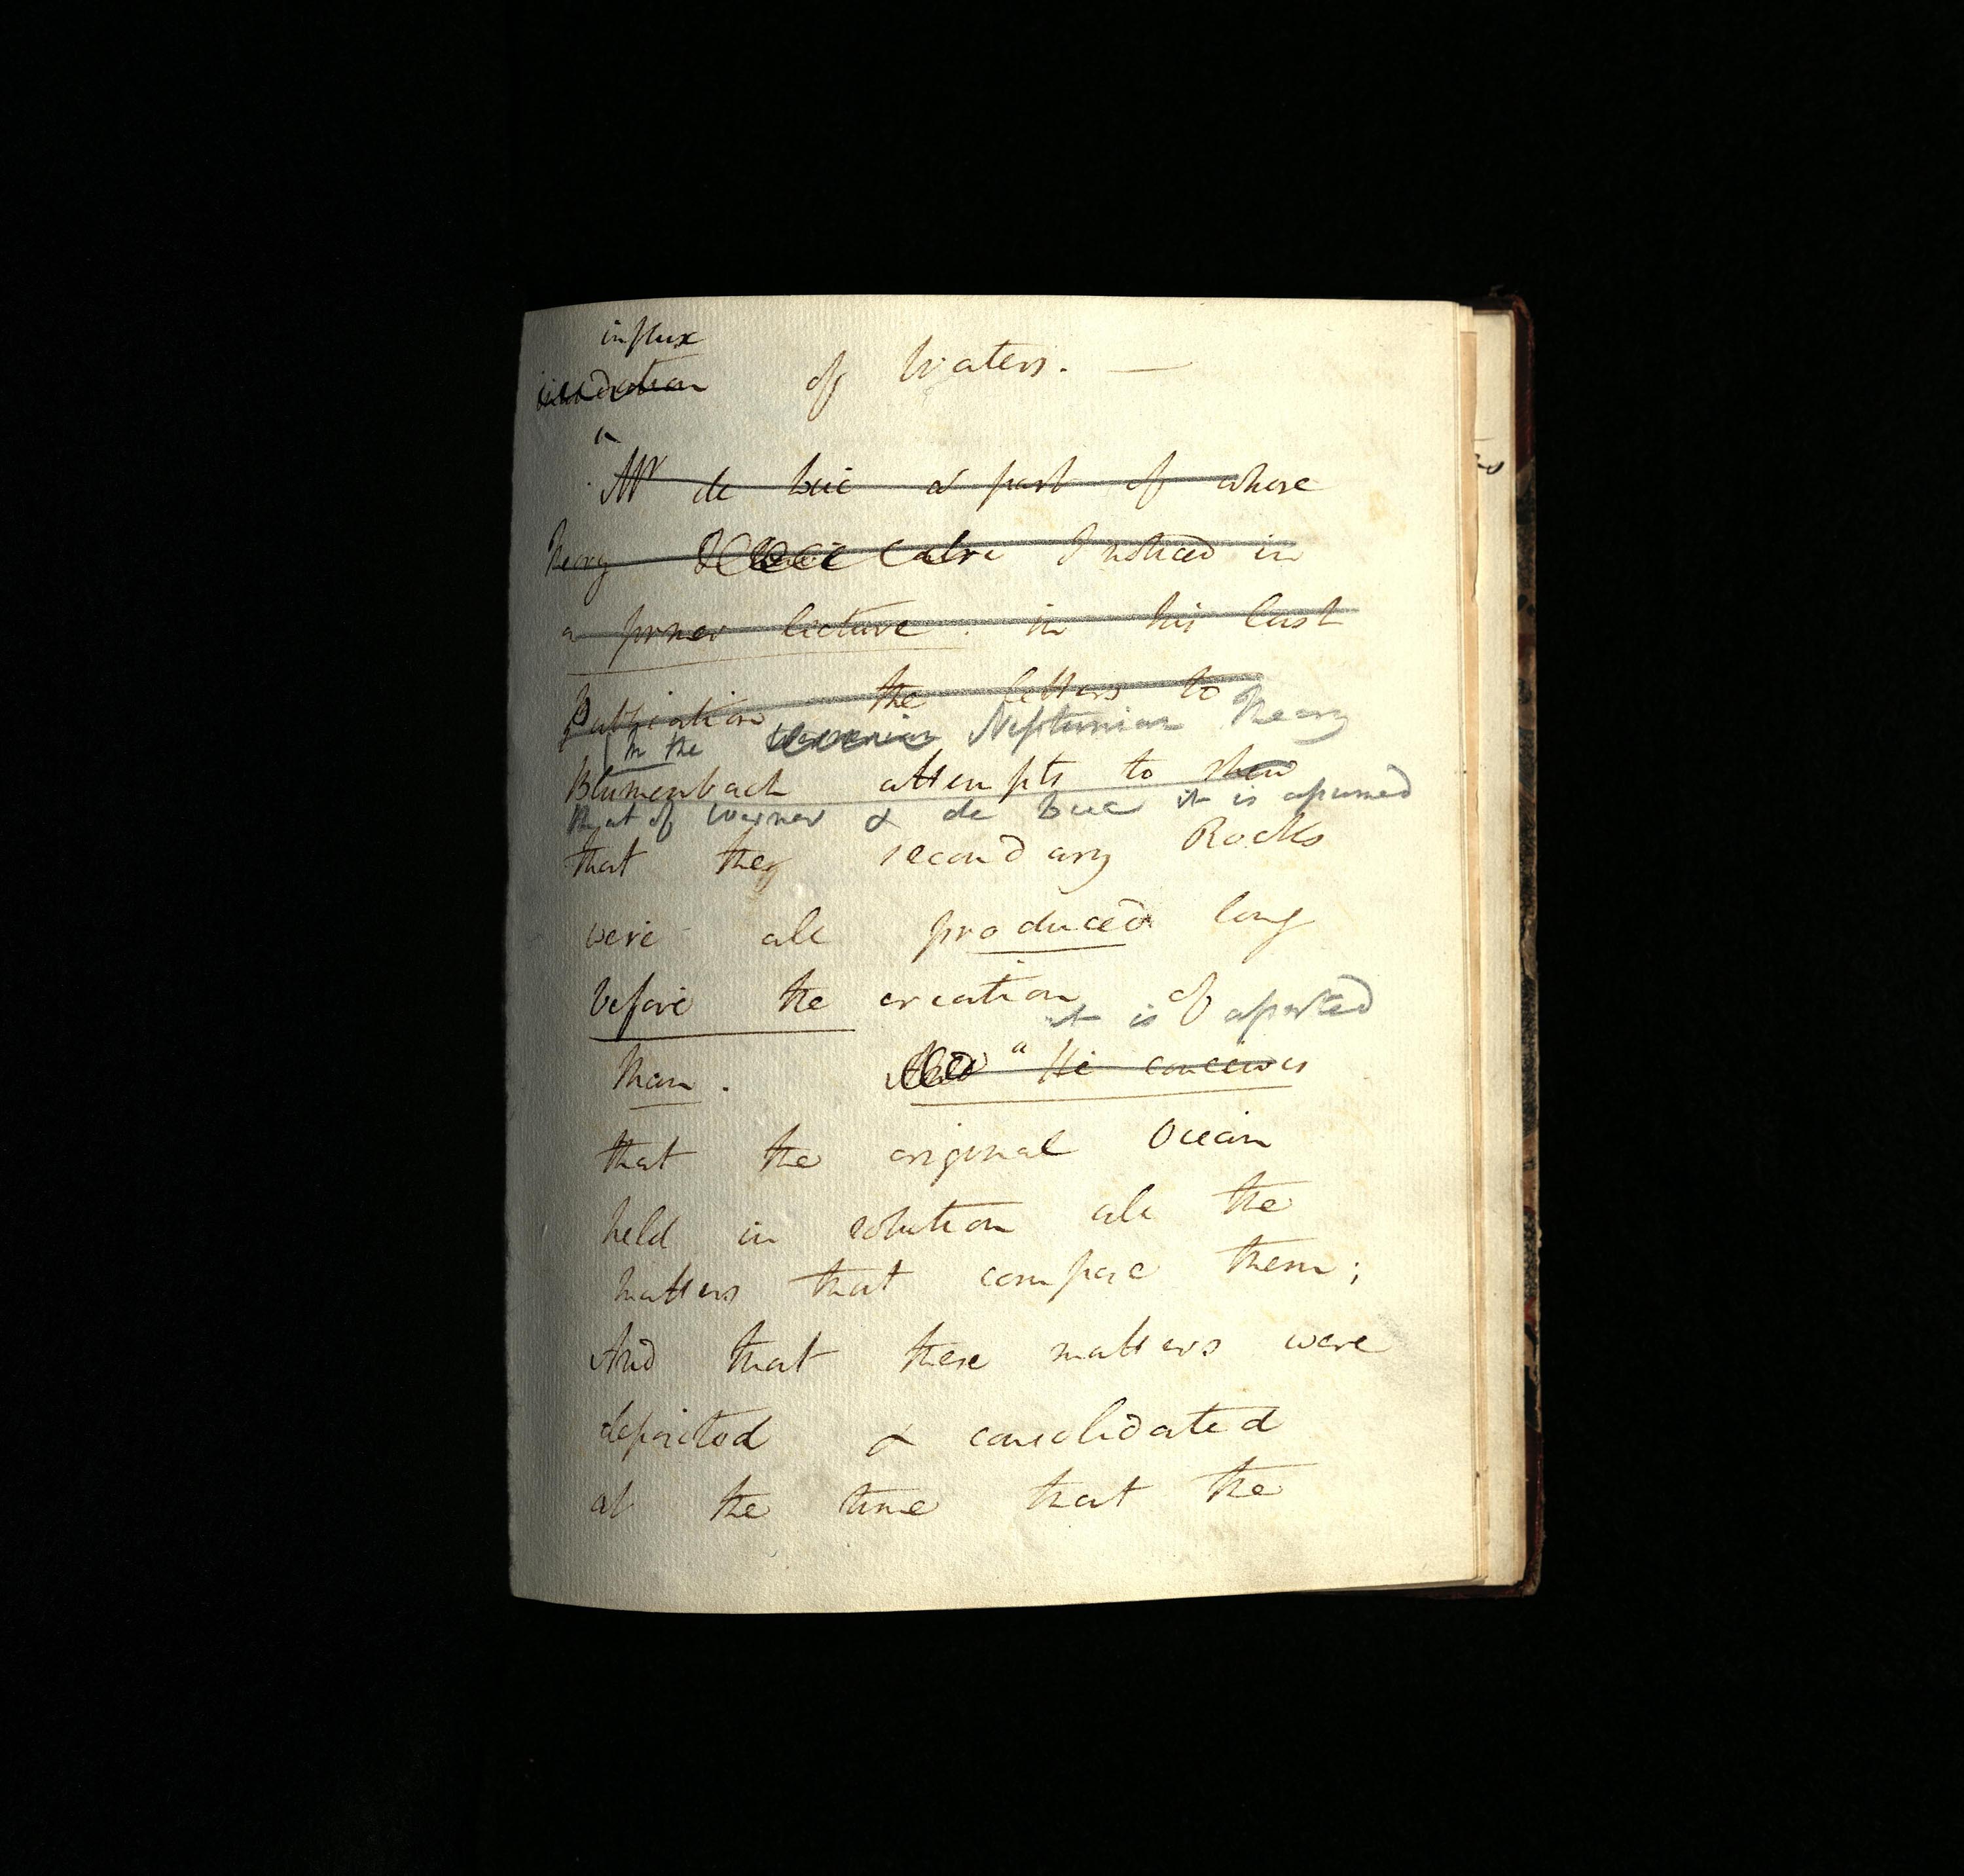 influx
inundation of Waters. —
"Mr de Luc a part of whose
theory I noticed in
a former lecture. in his last
Publication the letters to
In the Wernerian Neptunian Theory
Blumenbach attempts to shew
that of Werner & de Luc it is assumed
that they secondary Rocks
were all produced long
before the creation of
it is asserted
Man. And " He conceives
that the original Ocean
held in solution all the
matters that compose them;
And that these matters were
deposited & consolidated
at the time that the